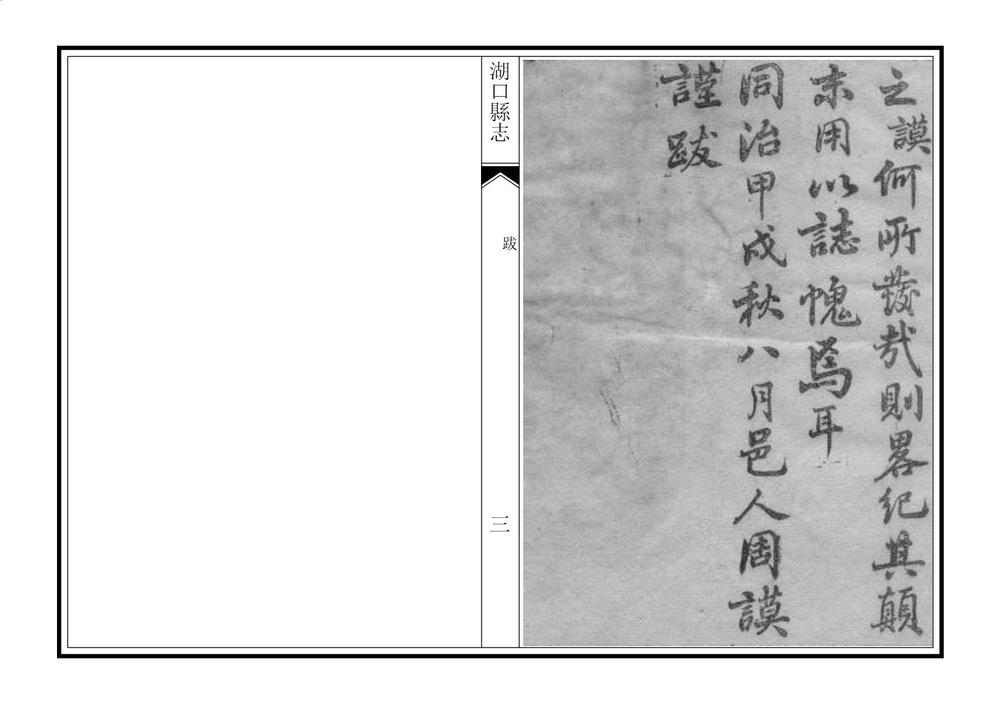 之謨何所發哉則畧紀其顛
末用以誌愧焉耳
同治甲戌秋八月邑人周謨
謹跋
湖口縣志
跋
三